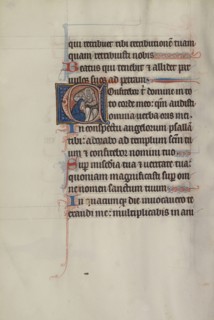 qui retribuet tibi retributionem tuam
quam retribuisti nobis
Beatus qui tenebit et allidet par
vulos suos ad petram
Confitebor tibi domine in to
to corde meo: qm audisti
omnia verba oris mei.
In conspectu angelorum psallā
tibi: adorabo ad templum scm̄ tu
um et confitebor nomini tuo
Sup misericordia tua et veritate tua:
quoniam magnificasti sup om
ne nomen sanctum tuum
In quacumqz die invocavero te
exaudi me: multiplicabis in ani